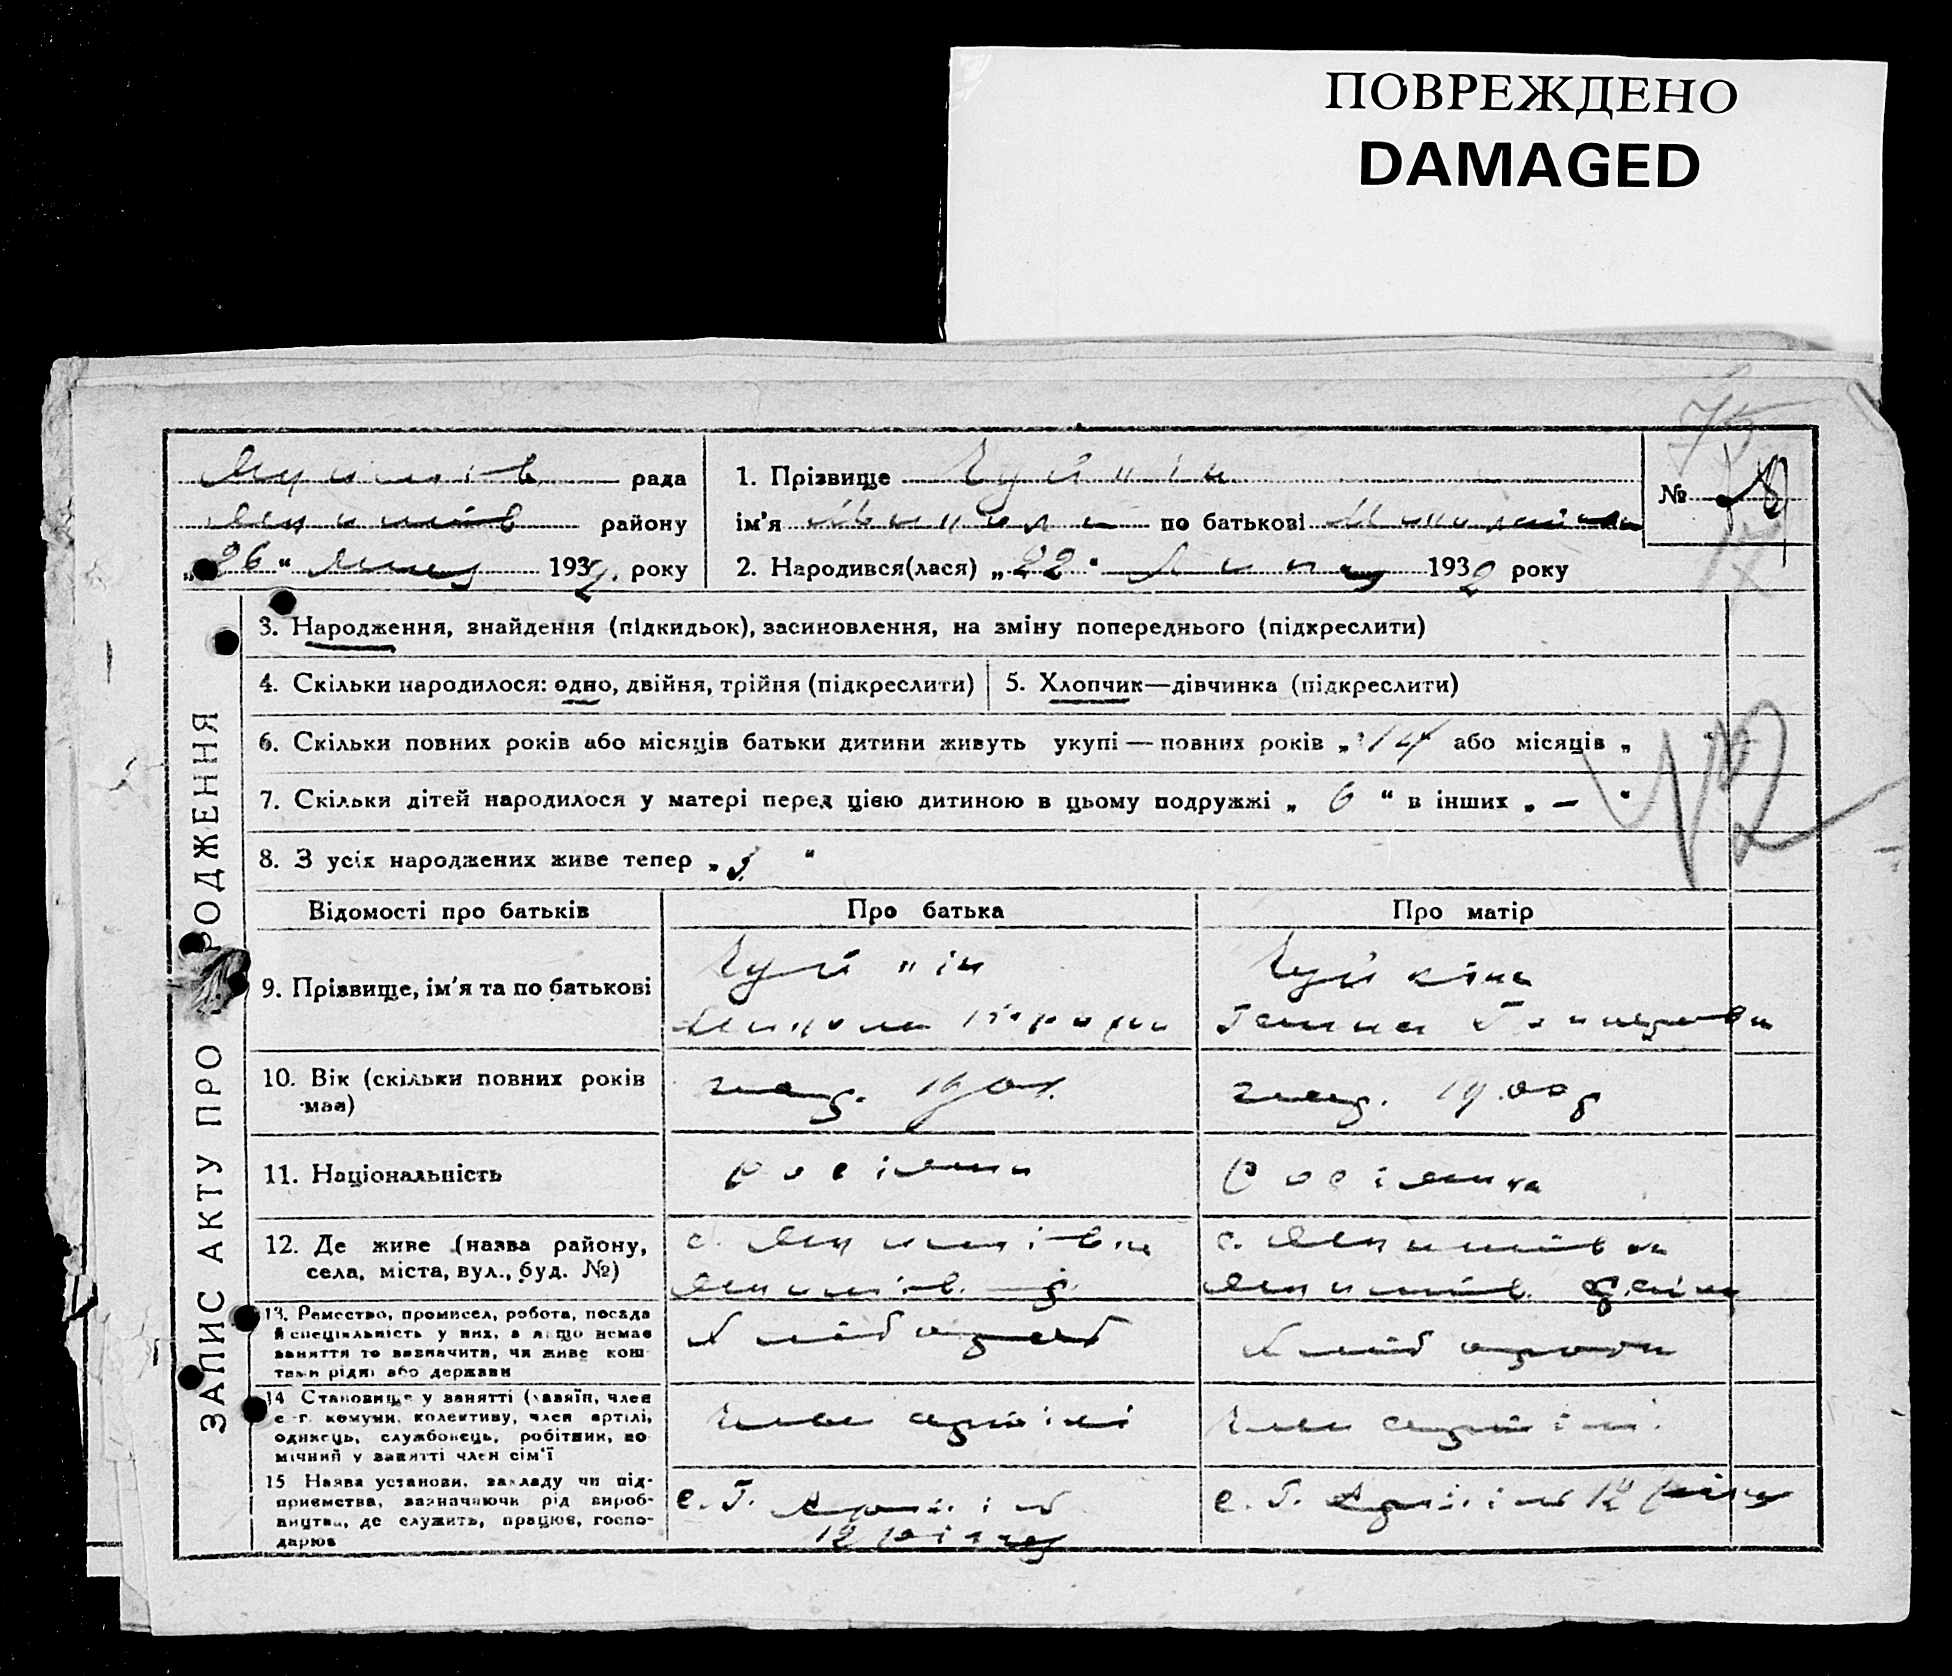 ПОВРЕЖДЕНО
DAMAGED
75
рада
району
„26“ липця 1932 року
1. Прізвище Чуйкін
ім'я Микола по батькові
2. Народився(лася) „22“ Липця 1932 року
№ 78
17
ЗАПИС АКТУ ПРО РОДЖЕННЯ
3. Народження, знайдення (підкидьок), засиновлення, на зміну попереднього (підкреслити)
4. Скільки народилося: одно, двійня, трійня (підкреслити)
5. Хлопчик—дівчинка (підкреслити)
6. Скільки повних років або місяців батьки дитини живуть укупі — повних років „14“ або місяців „ “
7. Скільки дітей народилося у матері перед цією дитиною в цьому подружжі „ 6 “ в інших „ — “
8. З усіх народжених живе тепер „ 3 “
Відомості про батьків
Про батька
Про матір
9. Прізвище, ім'я та по батькові
Чуйкін
Микола
Чуйкіна
Ганна
10. Вік (скільки повних років має)
нар. 1901.
нар. 1900 р
11. Національність
росіянин
росіянка
12. Де живе (назва району, села, міста, вул., буд. №)
с. Якимівка
Якимів. р.
с. Якимівка
Якимів. району
13. Ремество, промисел, робота, посада й спеціяльність у них, а якщо немає заняття то зазначити, чи живе коштами рідні або держави
Хлібороб
Хлібороб
14 Становище у занятті (хазяїн, член с-г. комуни, колективу, член артілі, одинець, службовець, робітник, помічний у занятті член сім'ї
член артілі
член артілі.
15 Назва установи, закладу чи підприємства, зазначаючи рід виробництва, де служить, працює, господарює
с. г. Артіль
12 річчя
с. г. Артіль 12 річчя